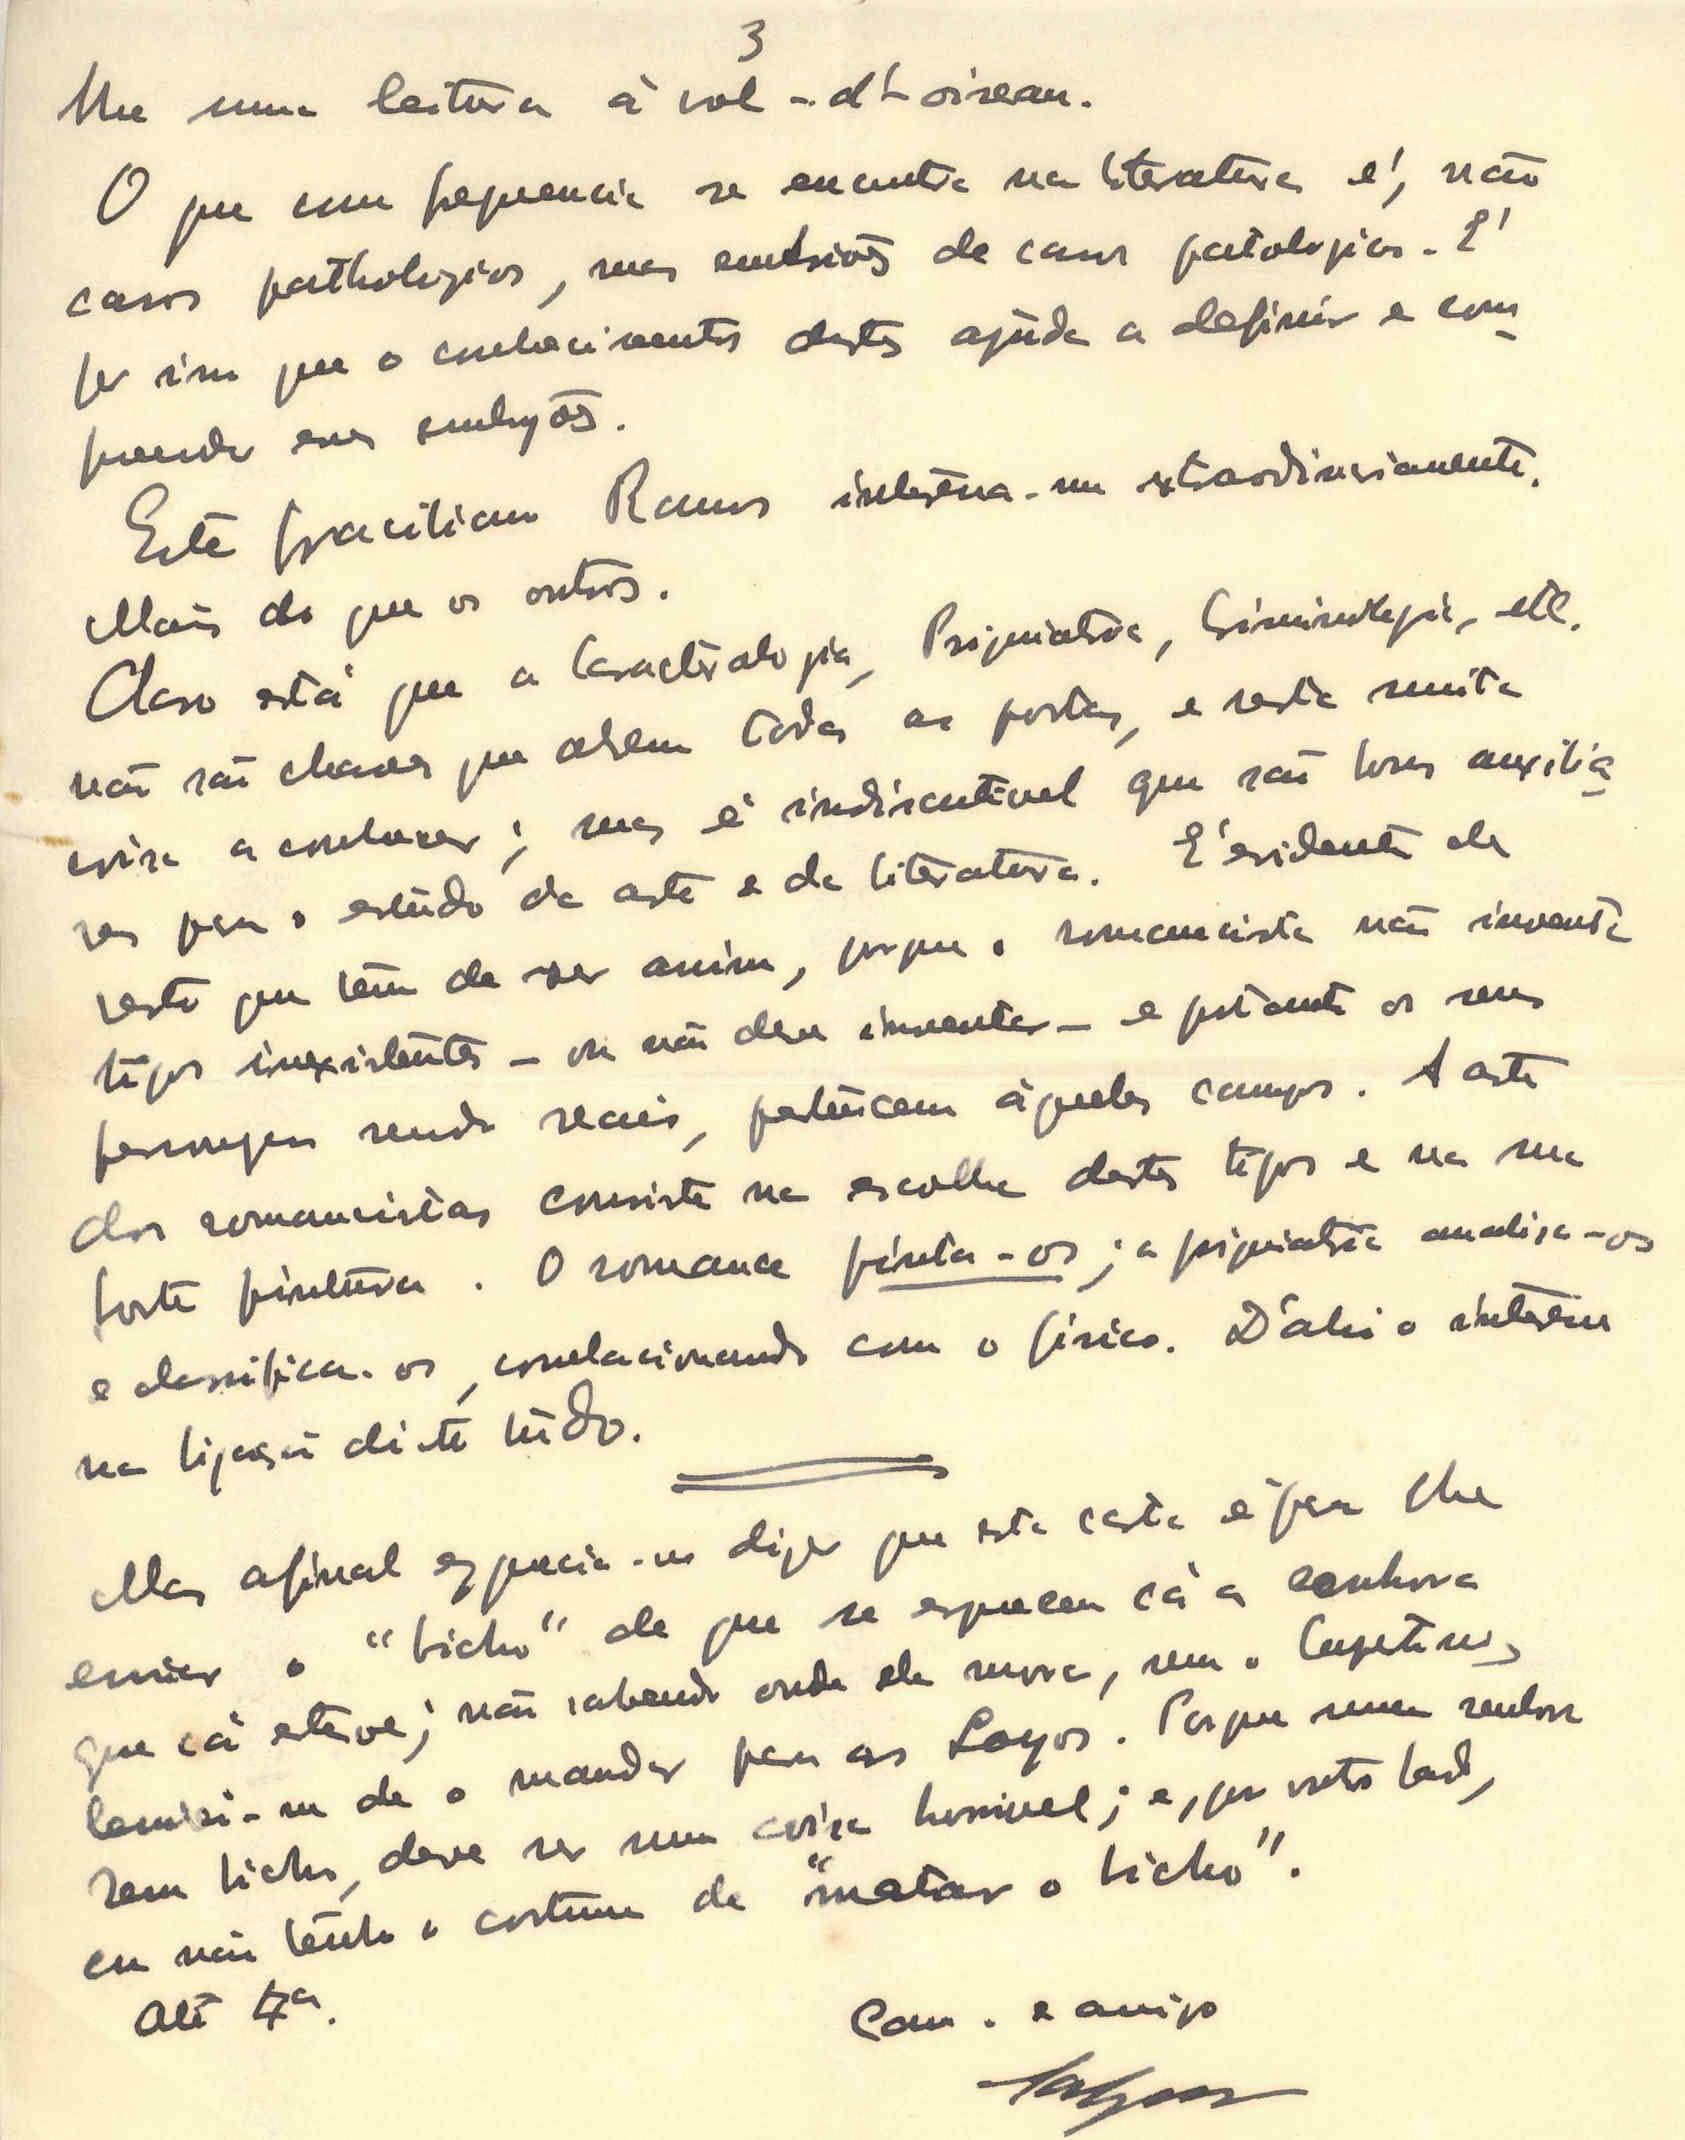 3
uma leitura à vol-d'oiseau.
O que com frequencia se encontra na literatura é, não
casos pathologicos, mas embriões de casos patologicos. É
por isso que o conhecimento destes ajuda a definir e com-
preender esses embryões.
Este Graciliano Ramos interessa-me extraordinariamente.
Mais do que os outros.
Claro está que a Caracterologia, Psiquiatria, Criminologia, etc.
não são chaves que abrem todas as portas, e resta muita
coisa a conhecer; mas é indiscutivel que são bons auxilia-
res para o estudo da arte e da literatura. É evidente de
resto que têm de ser assim, porque o romancista não inventa
tipos inexistentes - ou não deve inventar - e portanto os seus
personagens sendo reais, pertencem àqueles campos. A arte
dos romancistas consiste na escolha destes tipos e na sua
forte pintura. O romance pinta-os; a psiquiatria analisa-os
e classifica-os, correlacionando com o fisico. D'ahi o interesse
na ligação disto tudo.
Mas afinal esquecia-me dizer que esta carta é para lhe
enviar o "bicho" de que se esqueceu cá a senhora
que cá esteve; não sabendo onde ela mora, nem o
lembrei-me de o mandar para as Lagos. Porque uma senhora
sem bicho, deve ser uma coisa horrivel; e, por outro lado,
eu não tenho o costume de "matar o bicho".
Até 4ª.
Cam. e amigo